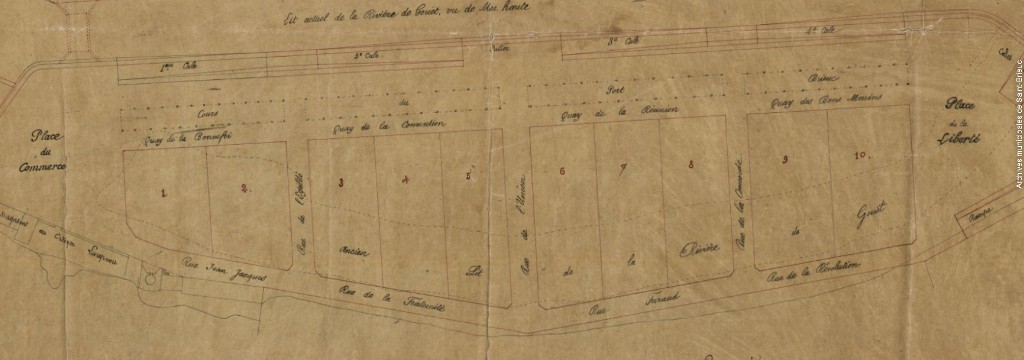 Est actuel de la Rivière de Gouet, vu de Mer haute
1ère Cale
2e Cale
3e Cale
4e Cale
Cours du Port Brieuc
Quay de la Convention
Quay de la Réunion
Quay des Bons Marins
Place
du
Commerce
Place
de la
Liberté
1.
2.
3
4
5.
6
7
8
9
10.
Rue de l'Egalité
Rue de l'Union
Rue de la Concorde
Ancien Lit de la Rivière de Gouet
Rue Jean Jacques
Rue de la Fraternité
Rue Féraud
Rue de la Révolution
Rampe
Archives municipales de Saint-Brieuc